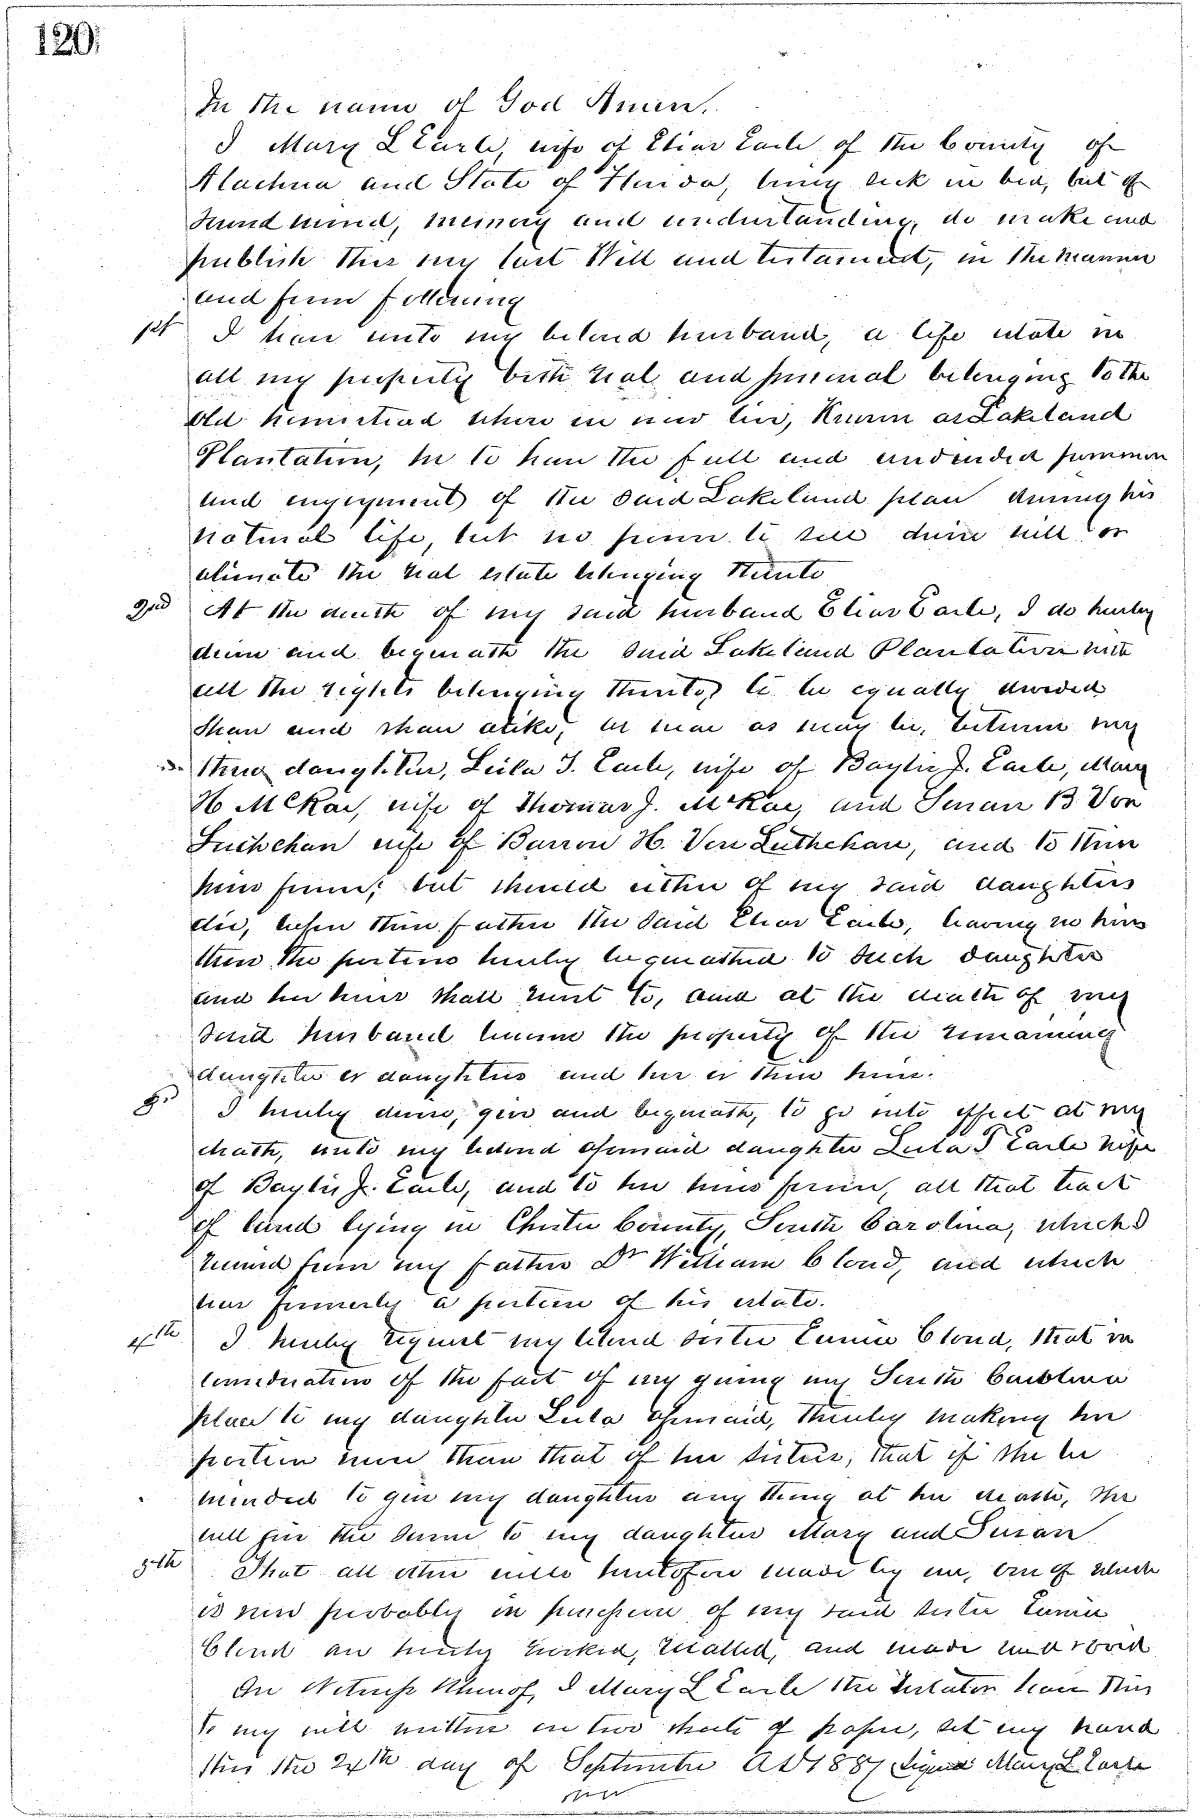 120
In the name of God Amen.
I Mary L Earle, wife of Elias Earle of the County of
Alachua and State of Florida, being sick in bed, but of
sound mind, memory and understanding, do make and
publish this my last Will and testament, in the manner
and form following
1st I leave unto my beloved husband, a life estate in
all my property both real and personal belonging to the
old homestead where we now live, Known as Lakeland
Plantation, he to have the full and undivided possession
and enjoyment of the said Lakeland place during his
natural life, but no power to sell devise will or
alienate the real estate belonging thereto
2nd At the death of my said husband Elias Earle, I do hereby
devise and bequeath the said Lakeland Plantation with
all the rights belonging thereto, to be equally divided
share and share alike, as near as may be, between my
three daughters, Leila T. Earle, wife of Baylis J. Earle, Mary
H McRae, wife of Thomas J. McRae, and Susan B Von
Luthehan wife of Barron H. Von Luthehan, and to their
heirs forever; but should either of my said daughters
die, before their father the said Elias Earle, having no heirs
then the portions hereby bequeathed to such daughter
and her heirs shall revert to, and at the death of my
said husband become the property of the remaining
daughter or daughters and her or their heirs.
3rd I hereby devise, give and beqeath, to go into effect at my
death, unto my beloved aforesaid daughter Leila T Earle wife
of Baylis J. Earle, and to her heirs forever, all that tract
of land lying in Chester County, South Carolina, which I
received from my father Dr William Cloud, and which
was formerly a portion of his estate.
4th I hereby request my beloved sister Eunice Cloud, that in
consideration of the fact of my giving my South Carolina
place to my daughter Leila aforesaid, thereby making her
portion more than that of her sisters, that if she be
minded to give my daughters any thing at her death, she
will give the same to my daughters Mary and Susan
5th That all other wills heretofore made by me, one of which
is now probably in possession of my said sister Eunice
Cloud are hereby revoked, recalled, and made null & void
In Witness Whereof, I Mary L Earle the testator have this
to my will written on two sheets of paper, set my hand
this the 24th day of September AD 1887 Signed Mary L Earle